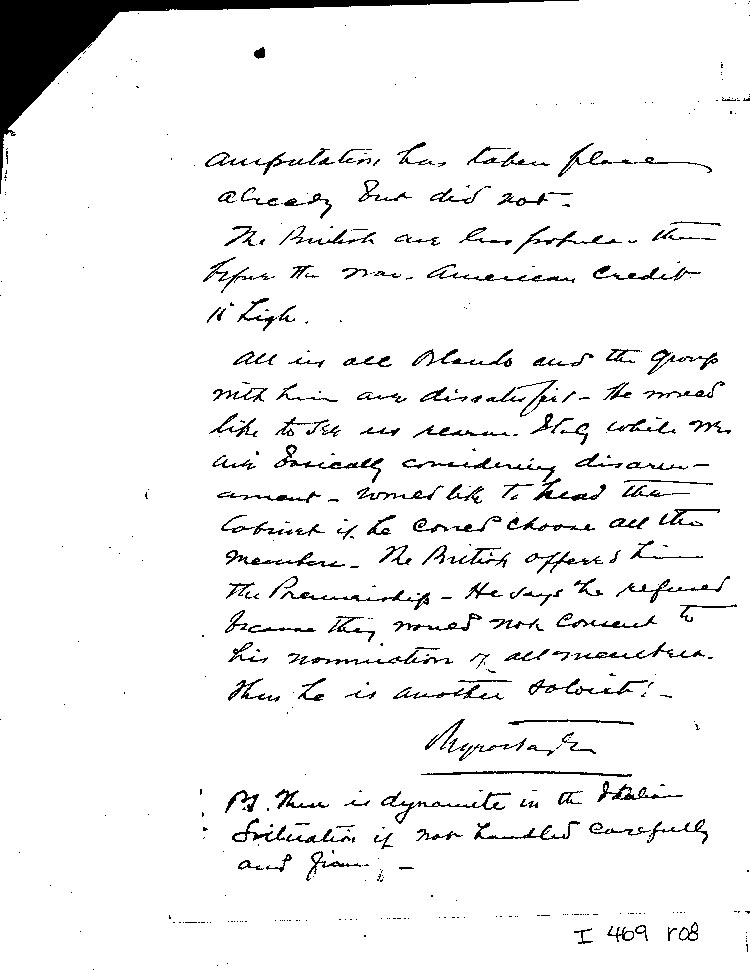 amputation has taken place
already but did not.
The British are less popular than
before the war. American Credit
is high.
All in all Orlando and the group
with him are dissatisfied - He would
like to see us rearm Italy while we
are basically considering disarm-
ament - would like to head the
Cabinet if he could choose all the
members. The British offered him
the Premiership - He says he refused
because they would not consent to
his nomination of all members.
Thus he is another soloist! -
Myron Taylor
PS. There is dynamite in the Italian
Situation if not handled carefully
and firmly -
I 469 r08